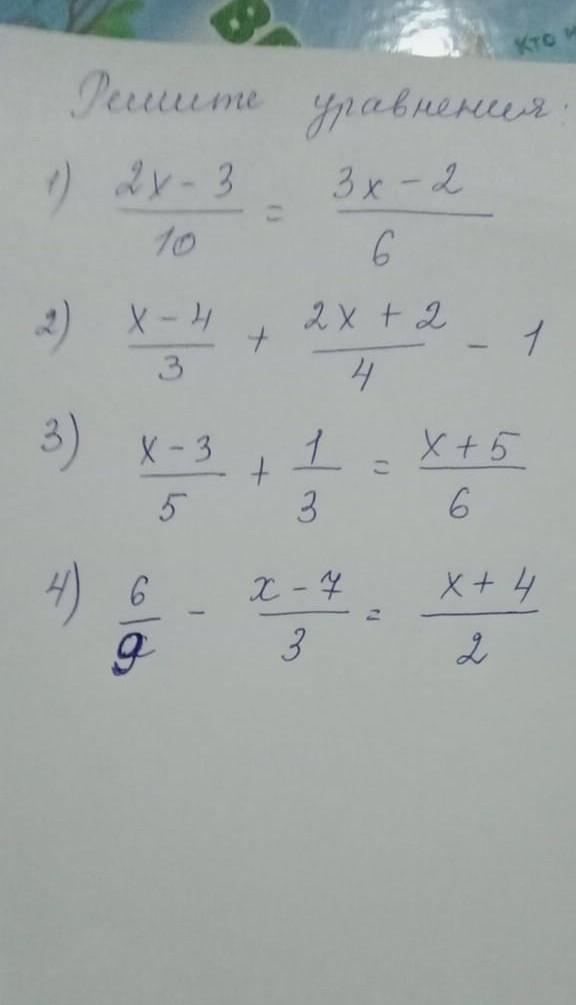 кто
Решите уравнения:
1) (2x - 3)/10 = (3x - 2)/6
2) (x - 4)/3 + (2x + 2)/4 - 1
3) (x - 3)/5 + 1/3 = (x + 5)/6
4) 6/9 - (x - 7)/3 = (x + 4)/2